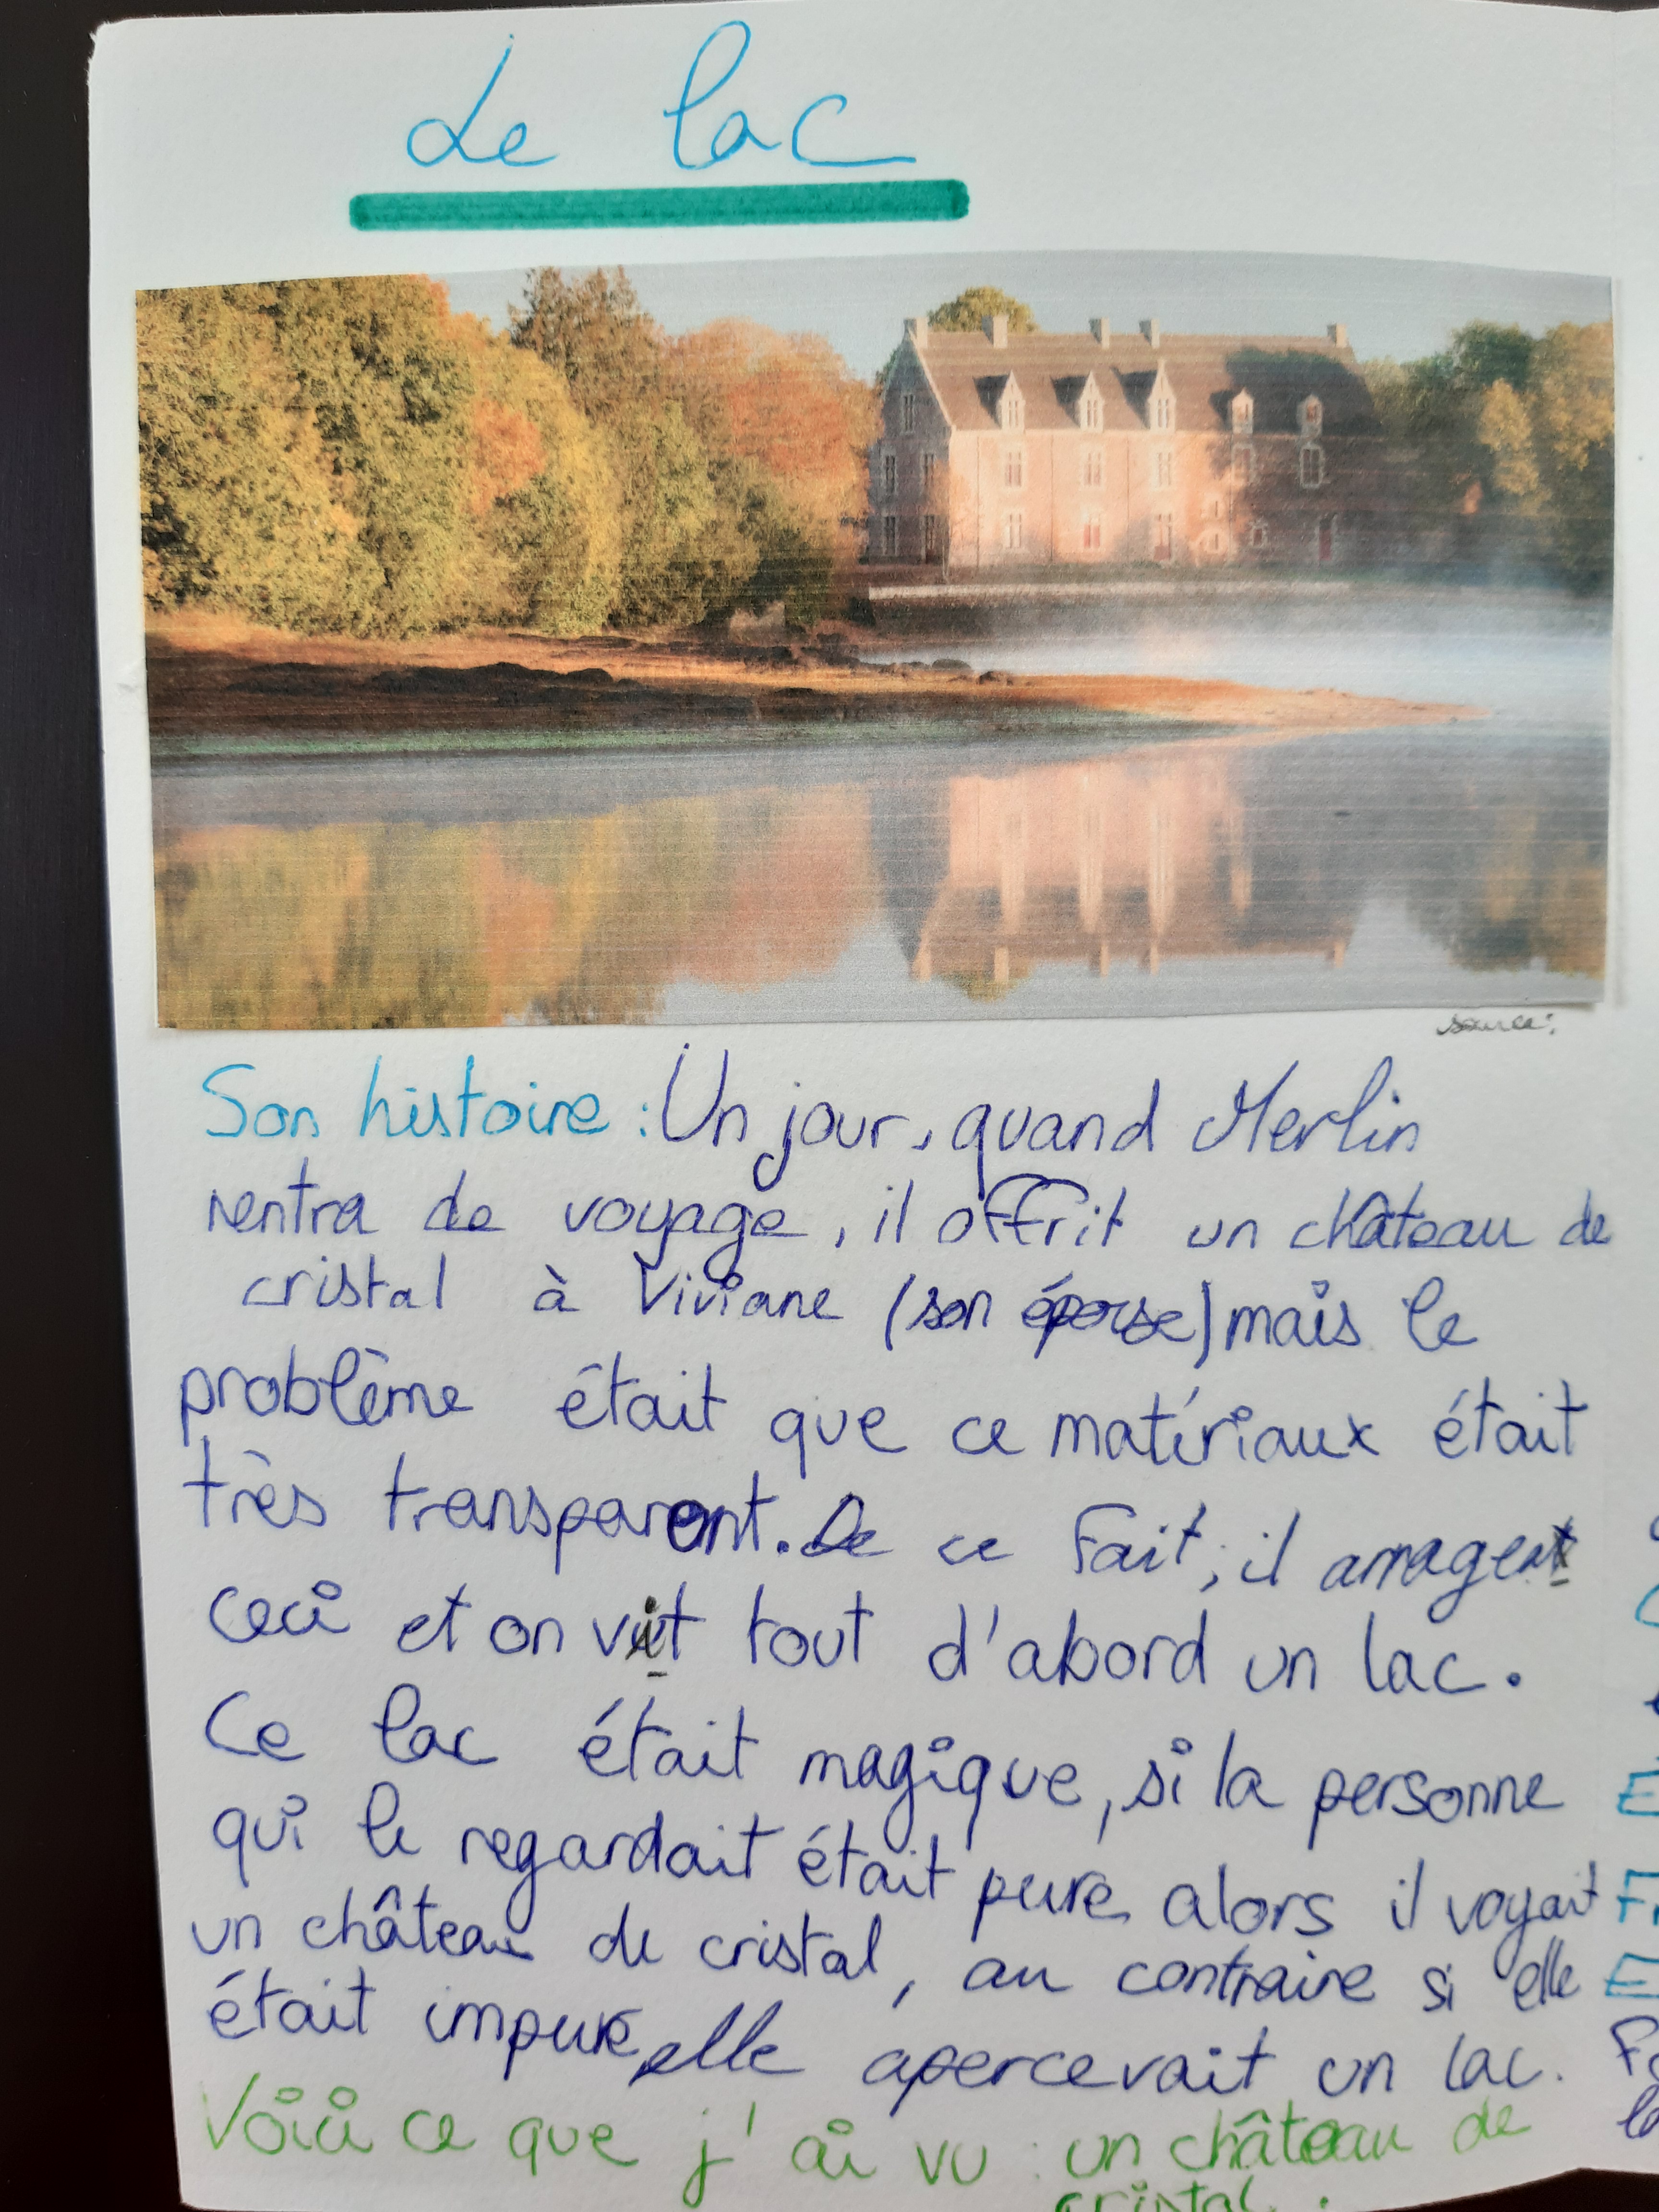 Le lac
source:
Son histoire : Un jour, quand Merlin
rentra de voyage, il offrit un château de
cristal à Viviane (son épouse) mais le
problème était que ce matériaux était
très transparent. De ce Fait, il arragea
ceci et on vit tout d'abord un lac.
Ce lac était magique, si la personne
qui le regardait était pure alors il voyait
un château de cristal, au contraire si elle
était impure, elle apercevait un lac.
Voici ce que j'ai vu : un château de
cristal.